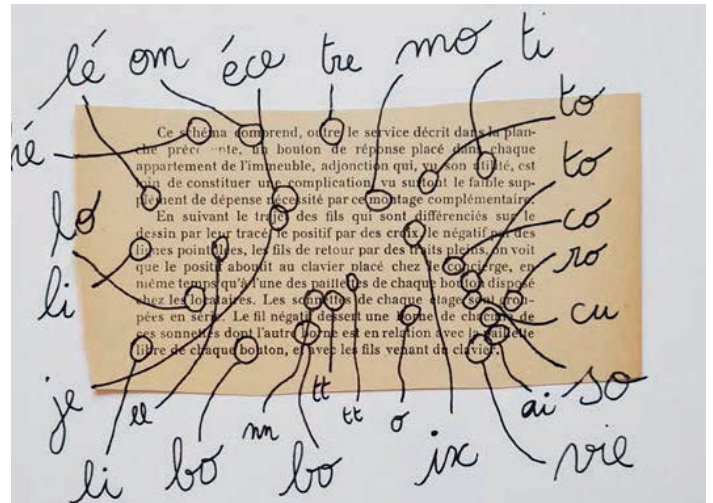 lé om éce tre mo ti
hé
to
to
lo
co
li
ro
cu
Ce schéma comprend, outre le service décrit dans la plan-
che préc nte, un bouton de réponse placé dans chaque
appartement de l'immeuble, adjonction qui, vu son utilité, est
loin de constituer une complication, vu surtout le faible sup-
plément de dépense nécessité par ce montage complémentaire.
En suivant le trajet des fils qui sont différenciés sur le
dessin par leur tracé, le positif par des croix, le négatif par des
lignes pointillées, les fils de retour par des traits pleins, on voit
que le positif aboutit au clavier placé chez le concierge, en
même temps qu'à l'une des paillettes de chaque bouton disposé
chez les locataires. Les sonnettes de chaque étage sont grou-
pées en série. Le fil négatif dessert une borne de chacune de
ces sonnettes dont l'autre borne est en relation avec la paillette
libre de chaque bouton, et avec les fils venant du clavier.
je ll nn tt tt o ai so
li bo bo ix vie